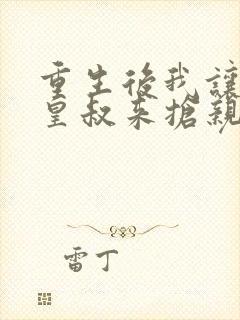 重生後我讓
皇叔来搶親
雷丁